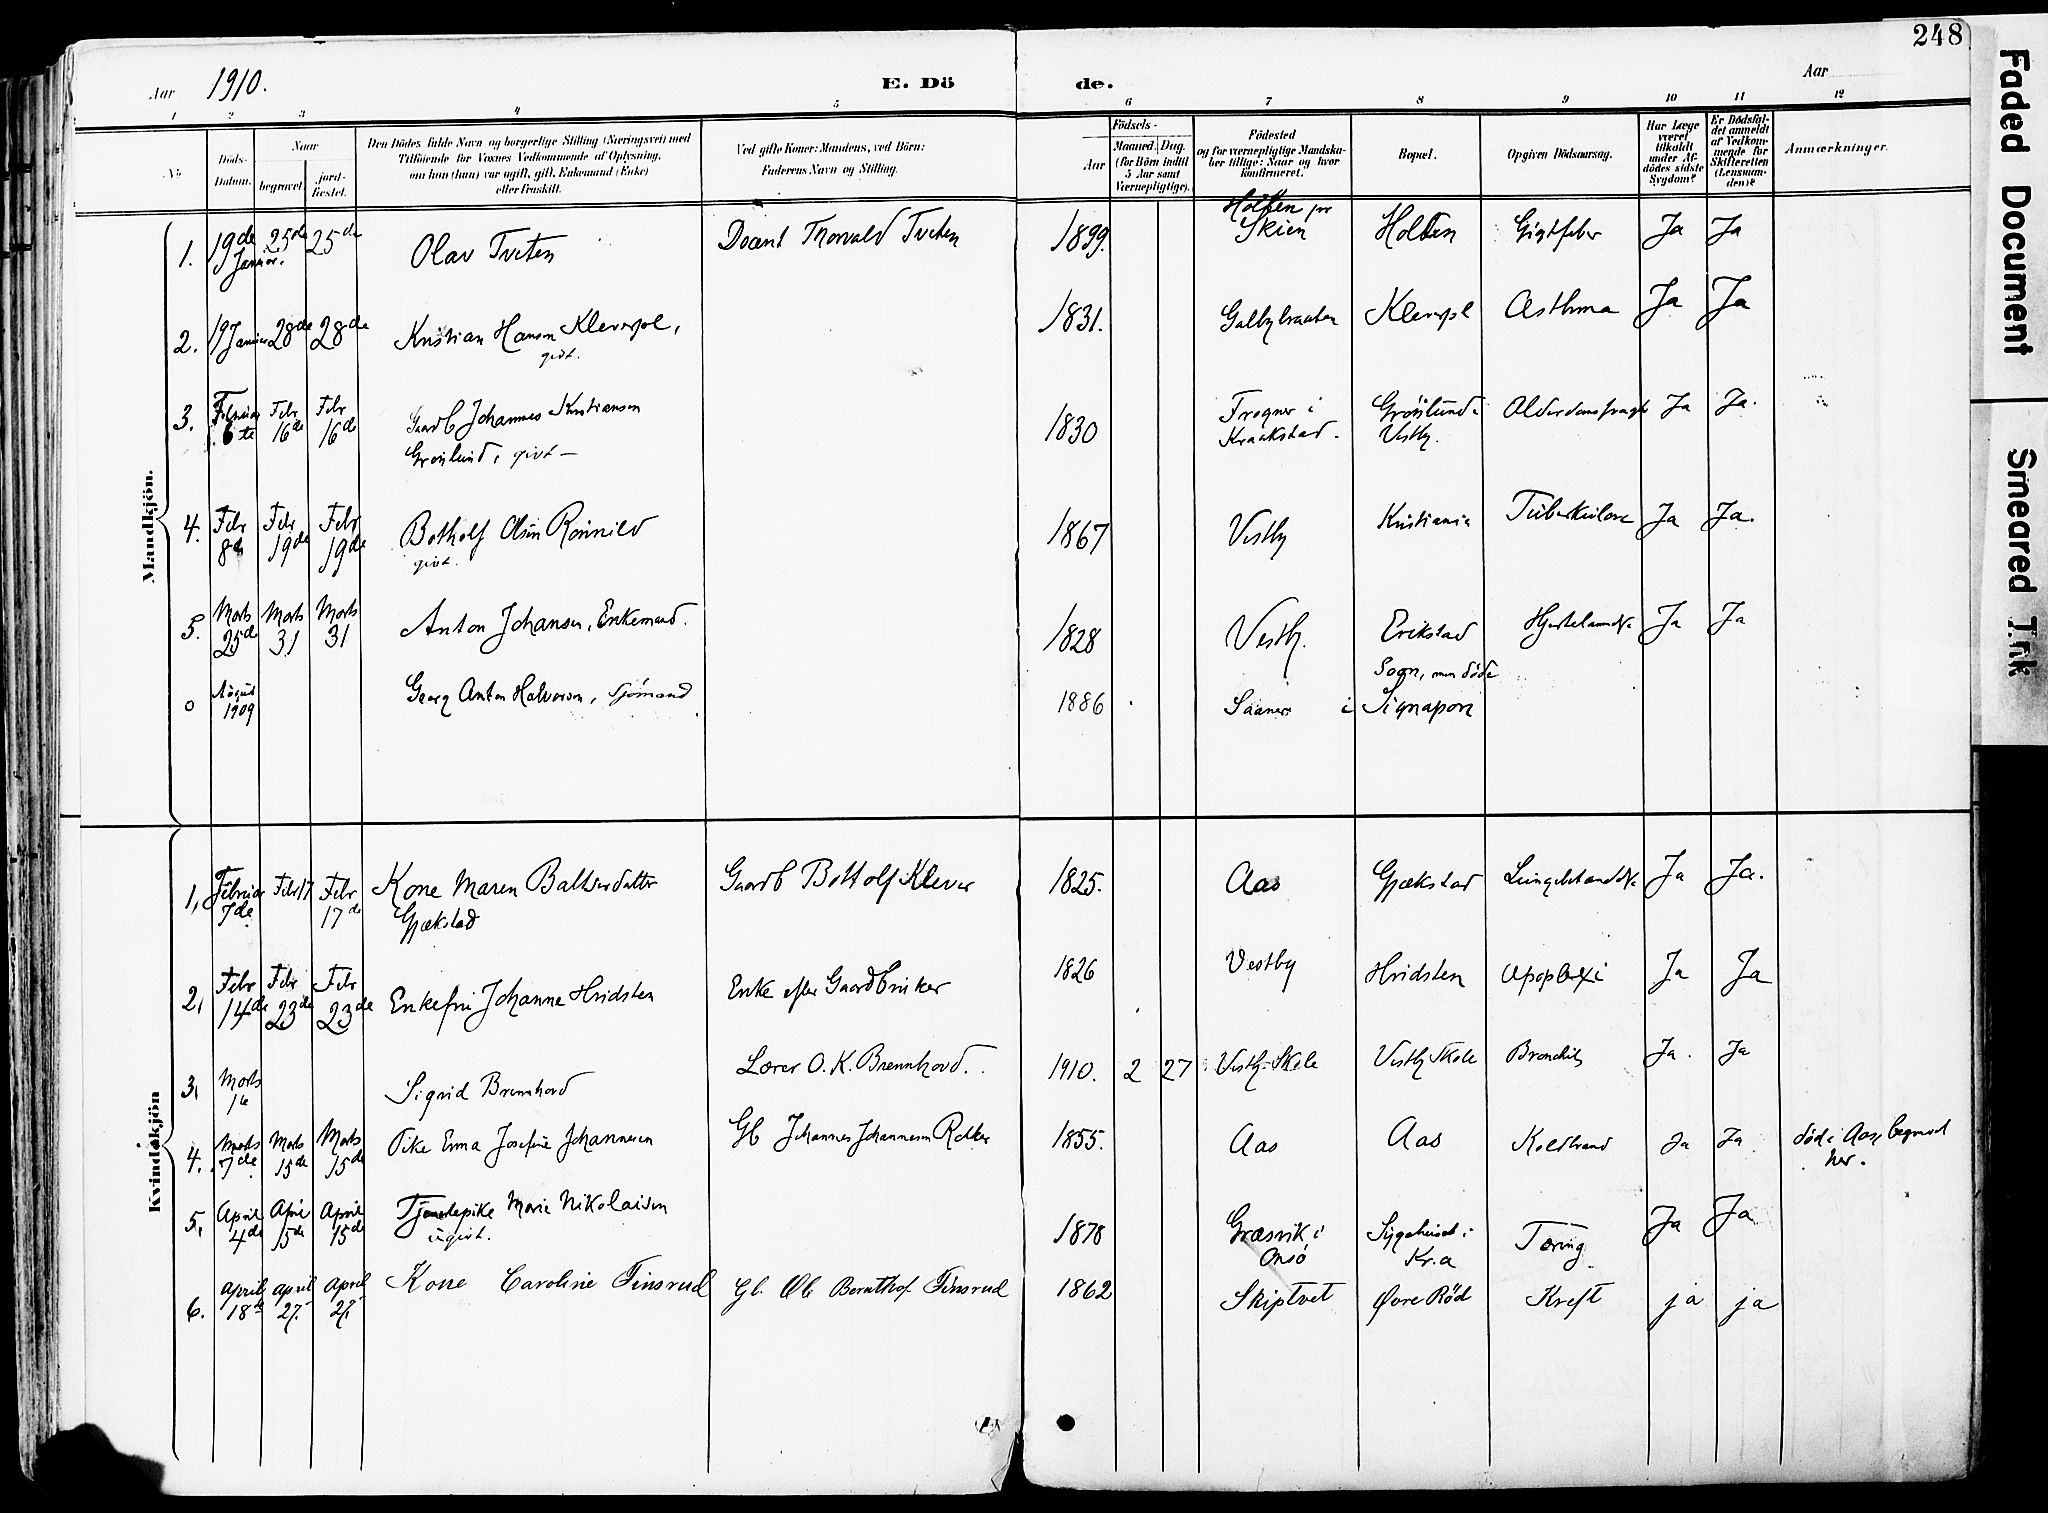 248
Aar 1910. E. Dö de. Aar
1 2 3 4 5 6 7 8 9 10 11 12
No
Döds-Datum.
Naar
begravet.
jord-fæstet.
Den Dödes fulde Navn og borgerlige Stilling (Næringsvei) med
Tilföiende for Voxnes Vedkommende af Oplysning,
om han (hun) var ugift, gift, Enkemand (Enke)
eller fraskilt.
Ved gifte Koner: Mandens, ved Börn:
Faderens Navn og Stilling.
Födsels-
Aar
Maaned. Dag.
(for Börn indtil
5 Aar samt
Værnepligtige).
Födested
og for værnepligtige Mandska-
ber tillige: Naar og hvor
konfirmeret.
Bopæl.
Opgiven Dödsaarsag.
Har Læge
været
tilkaldt
under Af-
dödes sidste
Sygdom?
Er Dödsfal-
det anmeldt
af Vedkom-
mende for
Skifteretten
(Lensman-
den)?
Anmærkninger.
Mandkjön.
1. 19de Januar. 25de 25de Olav Tveten Docent Thorvald Tveten 1899. Holden pr Skien Holden Gigtfeber Ja Ja
2. 19 Januar 28de 28de Kristian Hansen Kleverpol, givt. 1831. Galbybraaten Kleverpol Asthma Ja Ja
3. Februar 6te Febr 16de Febr 16de Gaardb Johannes Kristiansen Grønlund, givt – 1830 Frogner i Kraakstad. Grønlund i Vestby. Alderdomssvaghed Ja Ja.
4. Febr 8de Febr 19de Febr 19de Botholf Olsen Rønnild givt. 1867 Vestby Kristiania Tuberkulose Ja Ja.
5. Marts 25de Marts 31 Marts 31 Anton Johansen, Enkemand. 1828 Vestby. Erikstad Hjertelammelse Ja Ja
0 August 1909 Georg Anton Halvorsen, Sjömand 1886 Saaner Sogn, men døde i Signapore
Kvindekjön
1, Februar 7de Febr 17 Febr 17de Kone Maren Baltserdatter Gjækstad Gaardb Bottolf Klever 1825. Aas Gjækstad Lungebetændelse Ja Ja.
2, Febr 14de Febr 23de Febr 23de Enkefru Johanne Hvidsten Enke efter Gaardbruker 1826 Vestby Hvidsten Apoplexi Ja Ja
3, Marts Sigrid Brennhovd Lærer O. K. Brennhovd. 1910. 2 27 Vestby Skole Vestby Skole Bronchitis Ja. Ja
4. Marts 7de. Marts 15de Marts 15de Pike Emma Josefine Johannesen Gb Johannes Johannesen 1855. Aas Aas Koldbrand Ja Ja død i Aas, begravet her.
5, April 4de April 15de April 15de Tjenestepike Marie Nikolaisen ugivt. 1878 Græsvik i Onsö Sygehuset i Kr.a Tæring Ja Ja
6. April 18de April 27. April 27. Kone Caroline Finsrud Gb. Ole Bernthof Finsrud 1862 Skiptvet Øvre Röd Kreft ja ja
Faded Document
Smeared Ink